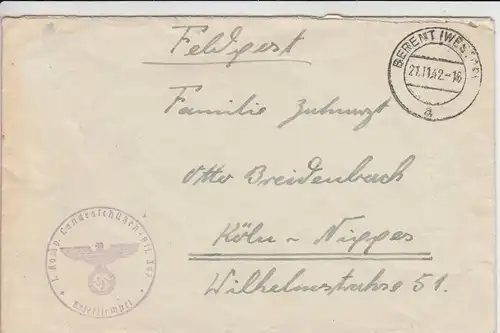 Feldpost
BERENT (WESTPR)
21.11.42-16
a
Familie Zahnarzt
Otto Breidenbach
Köln - Nippes
Wilhelmstrahse 51.
1. Komp. Landesschützenbatl.
Briefstempel